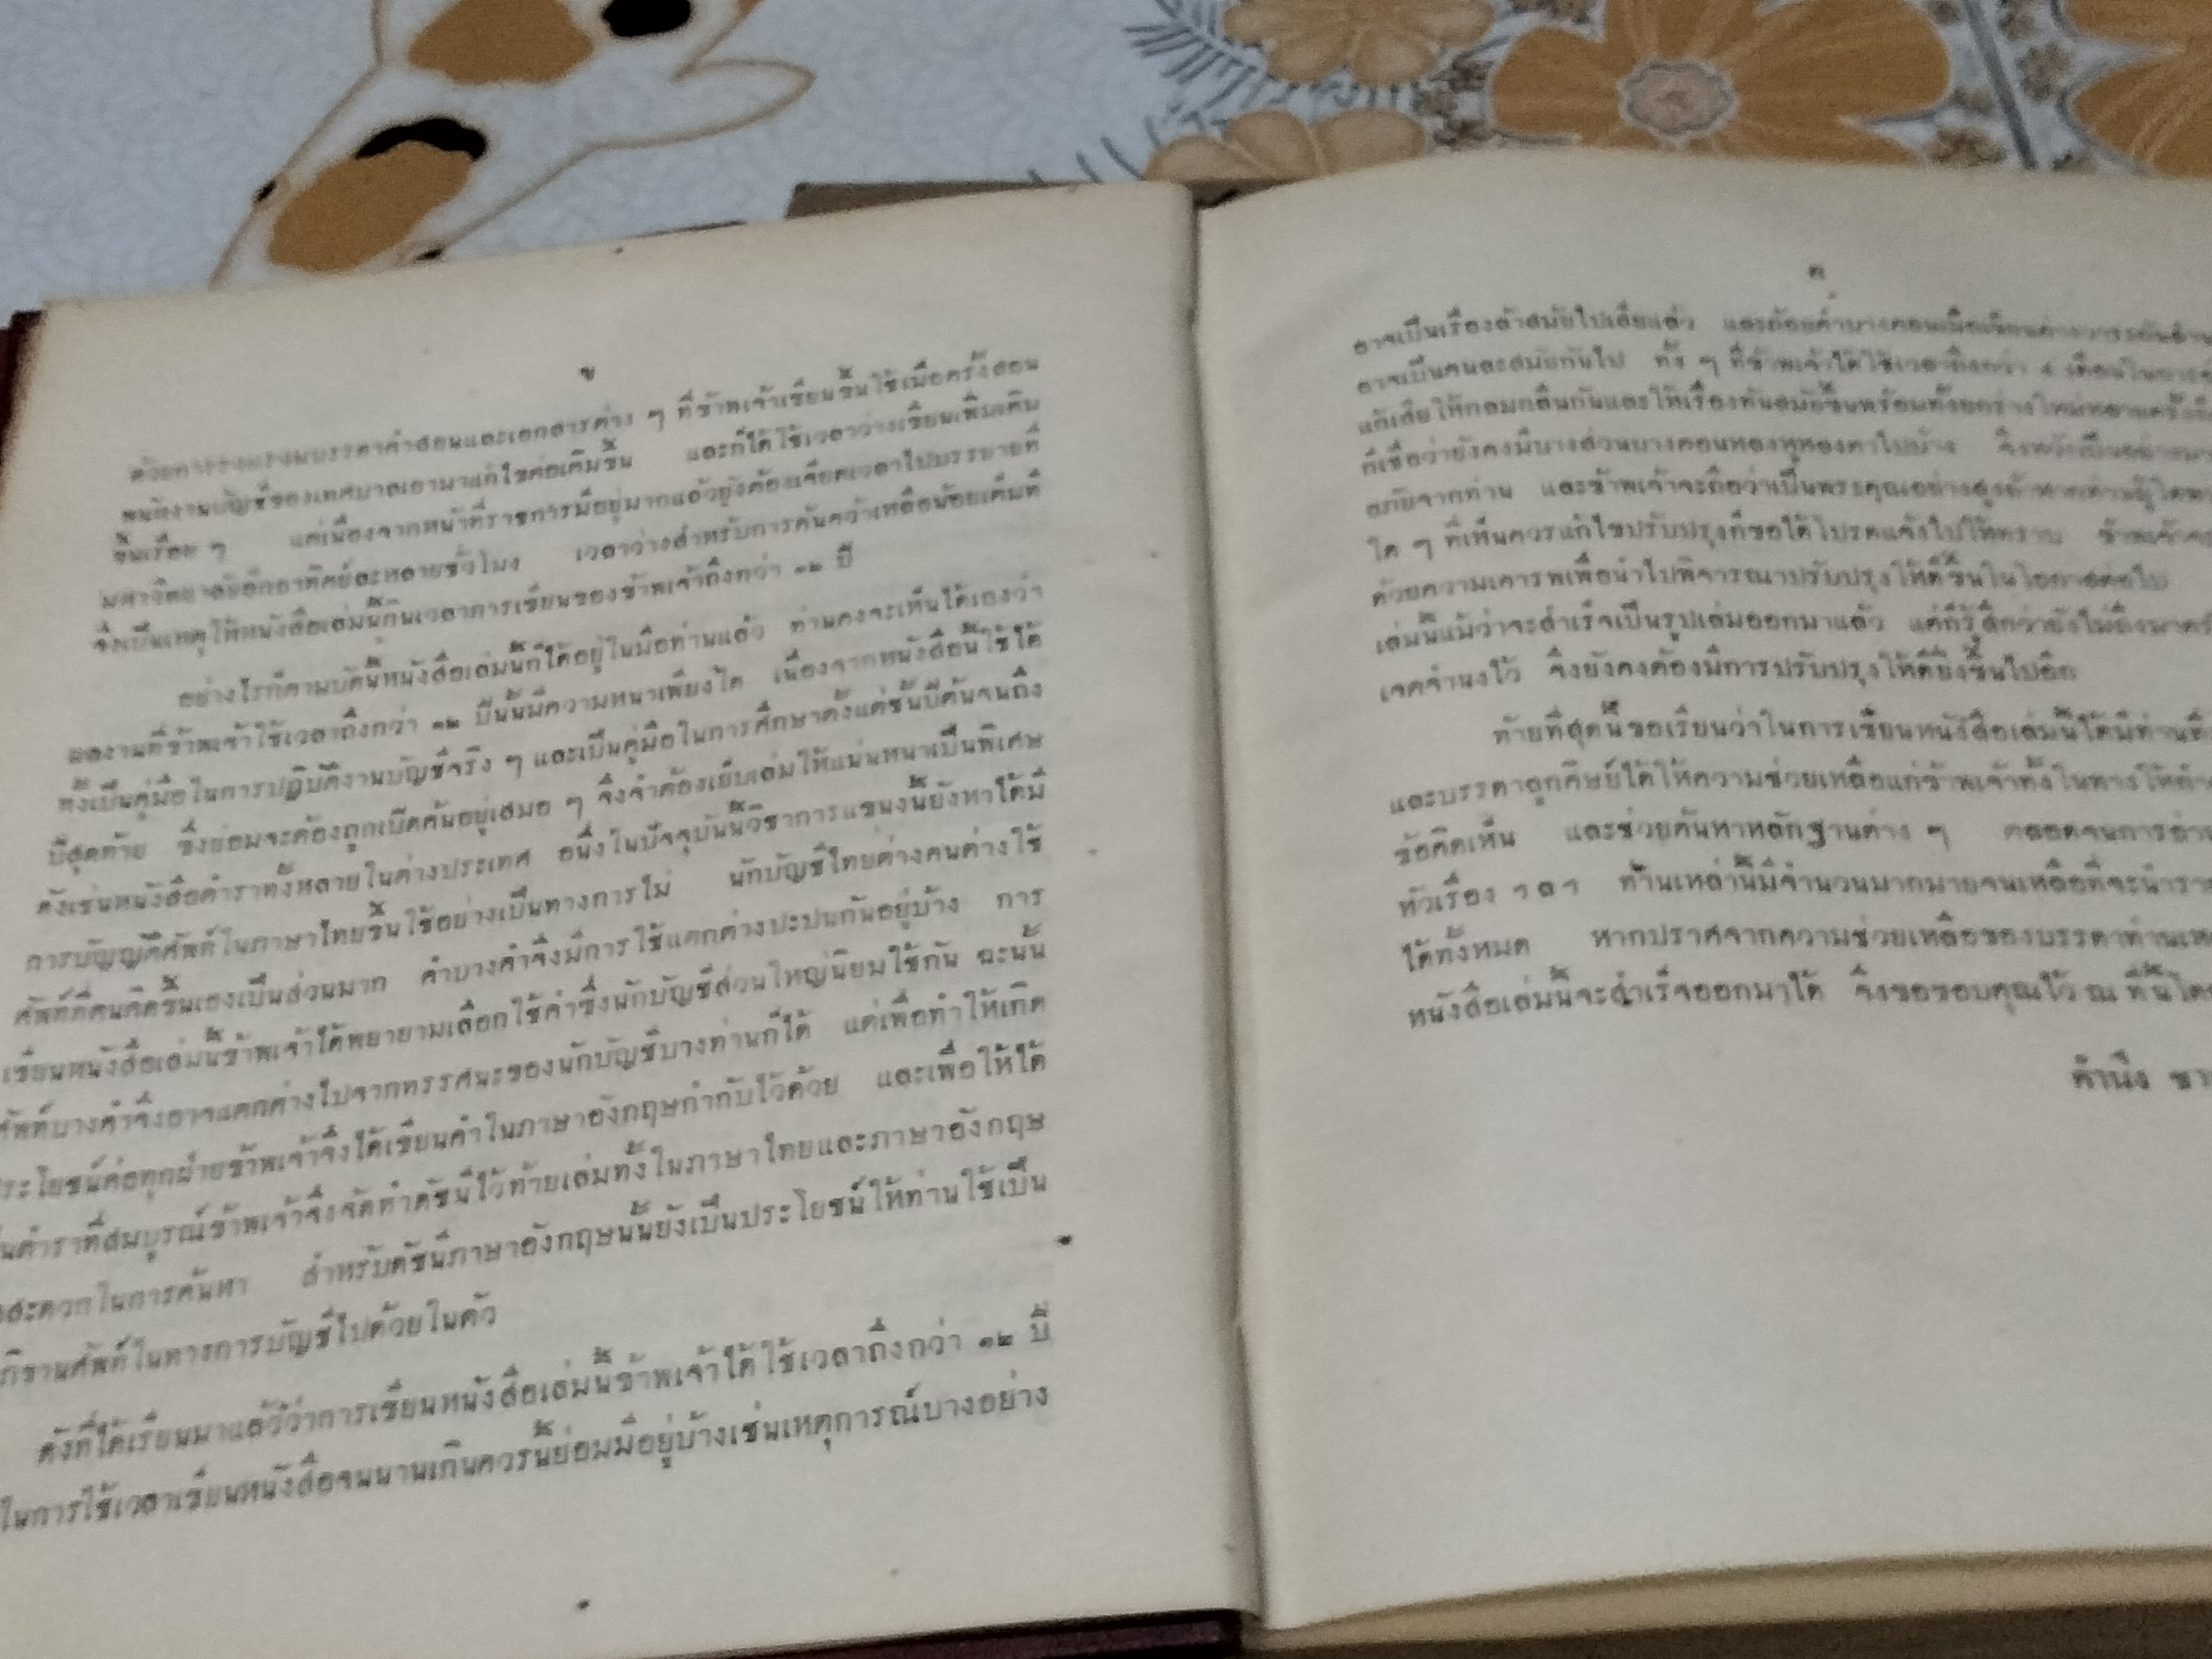 ข
ด้วยการรวบรวมบรรดาคำสอนและเอกสารต่าง ๆ ที่ข้าพเจ้าเขียนขึ้นใช้เมื่อครั้งสอน
พนักงานบัญชีของเทศบาลเอามาแก้ไขต่อเติมขึ้น และก็ได้ใช้เวลาว่างเขียนเพิ่มเติม
ขึ้นเรื่อย ๆ แต่เนื่องจากหน้าที่ราชการมีอยู่มากแล้วยังต้องเจียดเวลาไปบรรยายที่
มหาวิทยาลัยอีกอาทิตย์ละหลายชั่วโมง เวลาว่างสำหรับการค้นคว้าเหลือน้อยเต็มที
จึงเป็นเหตุให้หนังสือเล่มนี้กินเวลาการเขียนของข้าพเจ้าถึงกว่า ๑๒ ปี
อย่างไรก็ตามบัดนี้หนังสือเล่มนี้ก็ได้อยู่ในมือท่านแล้ว ท่านคงจะเห็นได้เองว่า
ผลงานที่ข้าพเจ้าใช้เวลาถึงกว่า ๑๒ ปีนั้นมีความหนาเพียงใด เนื่องจากหนังสือนี้ใช้ได้
ทั้งเป็นคู่มือในการปฏิบัติงานบัญชีจริง ๆ และเป็นคู่มือในการศึกษาตั้งแต่ชั้นปีต้นจนถึง
ปีสุดท้าย ซึ่งย่อมจะต้องถูกเปิดค้นอยู่เสมอ ๆ จึงจำต้องเย็บเล่มให้แน่นหนาเป็นพิเศษ
ดังเช่นหนังสือตำราทั้งหลายในต่างประเทศ อนึ่งในปัจจุบันนี้วิชาการแขนงนี้ยังหาได้มี
การบัญญัติศัพท์ในภาษาไทยขึ้นใช้อย่างเป็นทางการไม่ นักบัญชีไทยต่างคนต่างใช้
ศัพท์ที่ตนคิดขึ้นเองเป็นส่วนมาก คำบางคำจึงมีการใช้แตกต่างปะปนกันอยู่บ้าง การ
เขียนหนังสือเล่มนี้ข้าพเจ้าได้พยายามเลือกใช้คำซึ่งนักบัญชีส่วนใหญ่นิยมใช้กัน ฉะนั้น
ศัพท์บางคำจึงอาจแตกต่างไปจากทรรศนะของนักบัญชีบางท่านก็ได้ แต่เพื่อทำให้เกิด
ประโยชน์ต่อทุกฝ่ายข้าพเจ้าจึงได้เขียนคำในภาษาอังกฤษกำกับไว้ด้วย และเพื่อให้ได้
นตำราที่สมบูรณ์ข้าพเจ้าจึงจัดทำดัชนีไว้ท้ายเล่มทั้งในภาษาไทยและภาษาอังกฤษ
สะดวกในการค้นหา สำหรับดัชนีภาษาอังกฤษนั้นยังเป็นประโยชน์ให้ท่านใช้เป็น
ภิธานศัพท์ในทางการบัญชีไปด้วยในตัว
ดังที่ได้เรียนมาแล้วว่าการเขียนหนังสือเล่มนี้ข้าพเจ้าได้ใช้เวลาถึงกว่า ๑๒ ปี
ในการใช้เวลาเขียนหนังสือจนนานเกินควรนี้ย่อมมีอยู่บ้างเช่นเหตุการณ์บางอย่าง
ค
อาจเป็นเรื่องล้าสมัยไปเสียแล้ว และถ้อยคำบางตอนเมื่อเขียนต่างวาระกัน
อาจเป็นคนละสมัยกันไป ทั้ง ๆ ที่ข้าพเจ้าได้ใช้เวลาถึงกว่า ๔ เดือนในการ
แก้เสียให้กลมกลืนกันและให้เรื่องทันสมัยขึ้นพร้อมทั้งยกร่างใหม่หลายครั้ง
ก็เชื่อว่ายังคงมีบางส่วนบางตอนหลงหูหลงตาไปบ้าง จึงหวังเป็นอย่าง
อภัยจากท่าน และข้าพเจ้าจะถือว่าเป็นพระคุณอย่างสูงถ้าหากท่านผู้ใด
ใด ๆ ที่เห็นควรแก้ไขปรับปรุงก็ขอได้โปรดแจ้งไปให้ทราบ ข้าพเจ้า
ด้วยความเคารพเพื่อนำไปพิจารณาปรับปรุงให้ดีขึ้นในโอกาสต่อไป
เล่มนี้แม้ว่าจะสำเร็จเป็นรูปเล่มออกมาแล้ว แต่ก็รู้สึกว่ายังไม่ถึง
เจตจำนงไว้ จึงยังคงต้องมีการปรับปรุงให้ดียิ่งขึ้นไปอีก
ท้ายที่สุดนี้ขอเรียนว่าในการเขียนหนังสือเล่มนี้ได้มีท่าน
และบรรดาลูกศิษย์ได้ให้ความช่วยเหลือแก่ข้าพเจ้าทั้งในทางให้
ข้อคิดเห็น และช่วยค้นหาหลักฐานต่าง ๆ ตลอดจนการ
หัวเรื่อง ฯลฯ ท่านเหล่านี้มีจำนวนมากมายจนเหลือที่จะนำ
ได้ทั้งหมด หากปราศจากความช่วยเหลือของบรรดาท่าน
หนังสือเล่มนี้จะสำเร็จออกมาได้ จึงขอขอบคุณไว้ ณ ที่นี้
คำนึง